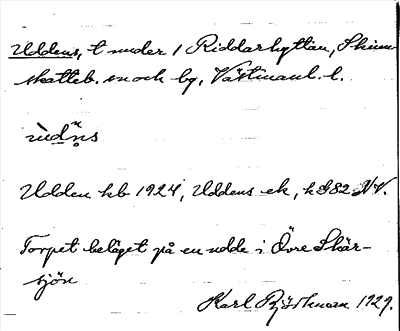 Uddens, t under 1 Riddarhyttan, Skinn-
skatteb. sn och bg, Västmanl. l.
ùdn̥s
Udden kb 1924, Uddens ek,
Torpet beläget på en udde i Övre Skär-
sjön
Karl Björkman 1929.